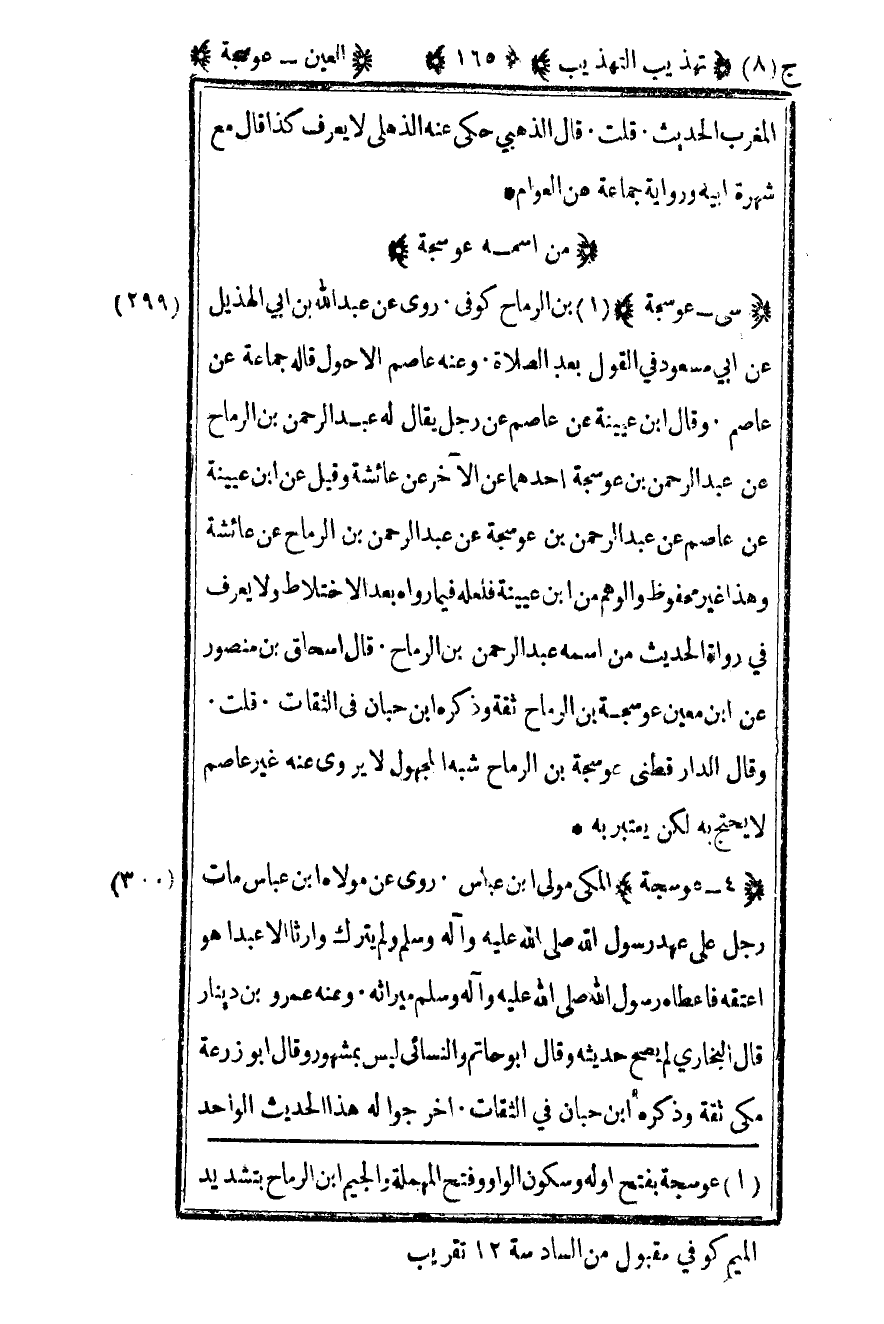 ج (٨) ﴿ تهذيب التهذيب ﴾ ﴿ ١٦٥ ﴾ ﴿ العين ــ عوسجة ﴾
المغرب الحديث · قلت · قال الذهبي حكى عنه الذهلى لا يعرف كذا قال مع
شهرة ابيه ورواية جماعة من العوام *
﴿ من اسمــه عوسجة ﴾
﴿ سى ــ عوسجة ﴾ (١) بن الرماح كوفى · روى عن عبدالله بن ابي الهذيل (٢٩٩)
عن ابي مسعود في القول بعد الصلاة · وعنه عاصم الاحول قاله جماعة عن
عاصم · وقال ابن عيينة عن عاصم عن رجل يقال له عبــد الرحمن بن الرماح
عن عبدالرحمن بن عوسجة احدهما عن الآخر عن عائشة وقيل عن ابن عيينة
عن عاصم عن عبدالرحمن بن عوسجة عن عبدالرحمن بن الرماح عن عائشة
وهذا غير محفوظ والوهم من ابن عيينة فلعله فيما رواه بعد الاختلاط ولا يعرف
في رواة الحديث من اسمه عبدالرحمن بن الرماح · قال اسحاق بن منصور
عن ابن معين عوسجــة بن الرماح ثقة وذكره ابن حبان فى الثقات · قلت ·
وقال الدار قطنى عوسجة بن الرماح شبه المجهول لا يروى عنه غير عاصم
لا يحتج به لكن يعتبر به *
﴿ ٤ ــ عوسجة ﴾ المكى مولى ابن عباس · روى عن مولاه ابن عباس مات (٣٠٠)
رجل على عهد رسول الله صلى الله عليه وآله وسلم ولم يترك وارثا الا عبدا هو
اعتقه فاعطاه رسول الله صلى الله عليه وآله وسلم ميراثه · وعنه عمرو بن دينار
قال البخاري لم يصح حديثه وقال ابو حاتم والنسائى ليس بمشهور وقال ابو زرعة
مكى ثقة وذكره ابن حبان في الثقات · اخر جوا له هذا الحديث الواحد
(١) عوسجة بفتح اوله وسكون الواو وفتح المهملة والجيم ابن الرماح بتشديد
الميم كوفي مقبول من السادسة ١٢ تقريب